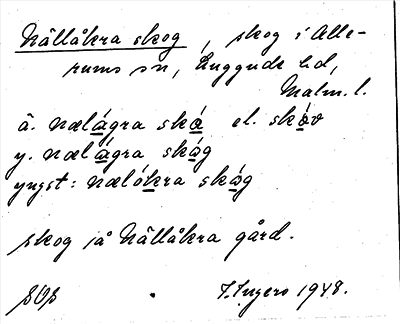 Nällåkra skog, skog i Alle-
rums sn, Luggude hd,
Malm. l.
ä. nælågra skå el. skåv
y. nælågra skåg
yngst: nælókra skåg
skog på Nällåkra gård.
1948.